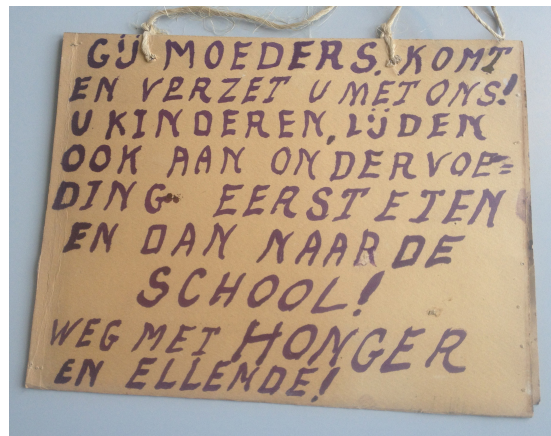 GIJ MOEDERS. KOMT
EN VERZET U MET ONS!
U KINDEREN, LIJDEN
OOK AAN ONDERVOE=
DING. EERST ETEN
EN DAN NAAR DE
SCHOOL!
WEG MET HONGER
EN ELLENDE!